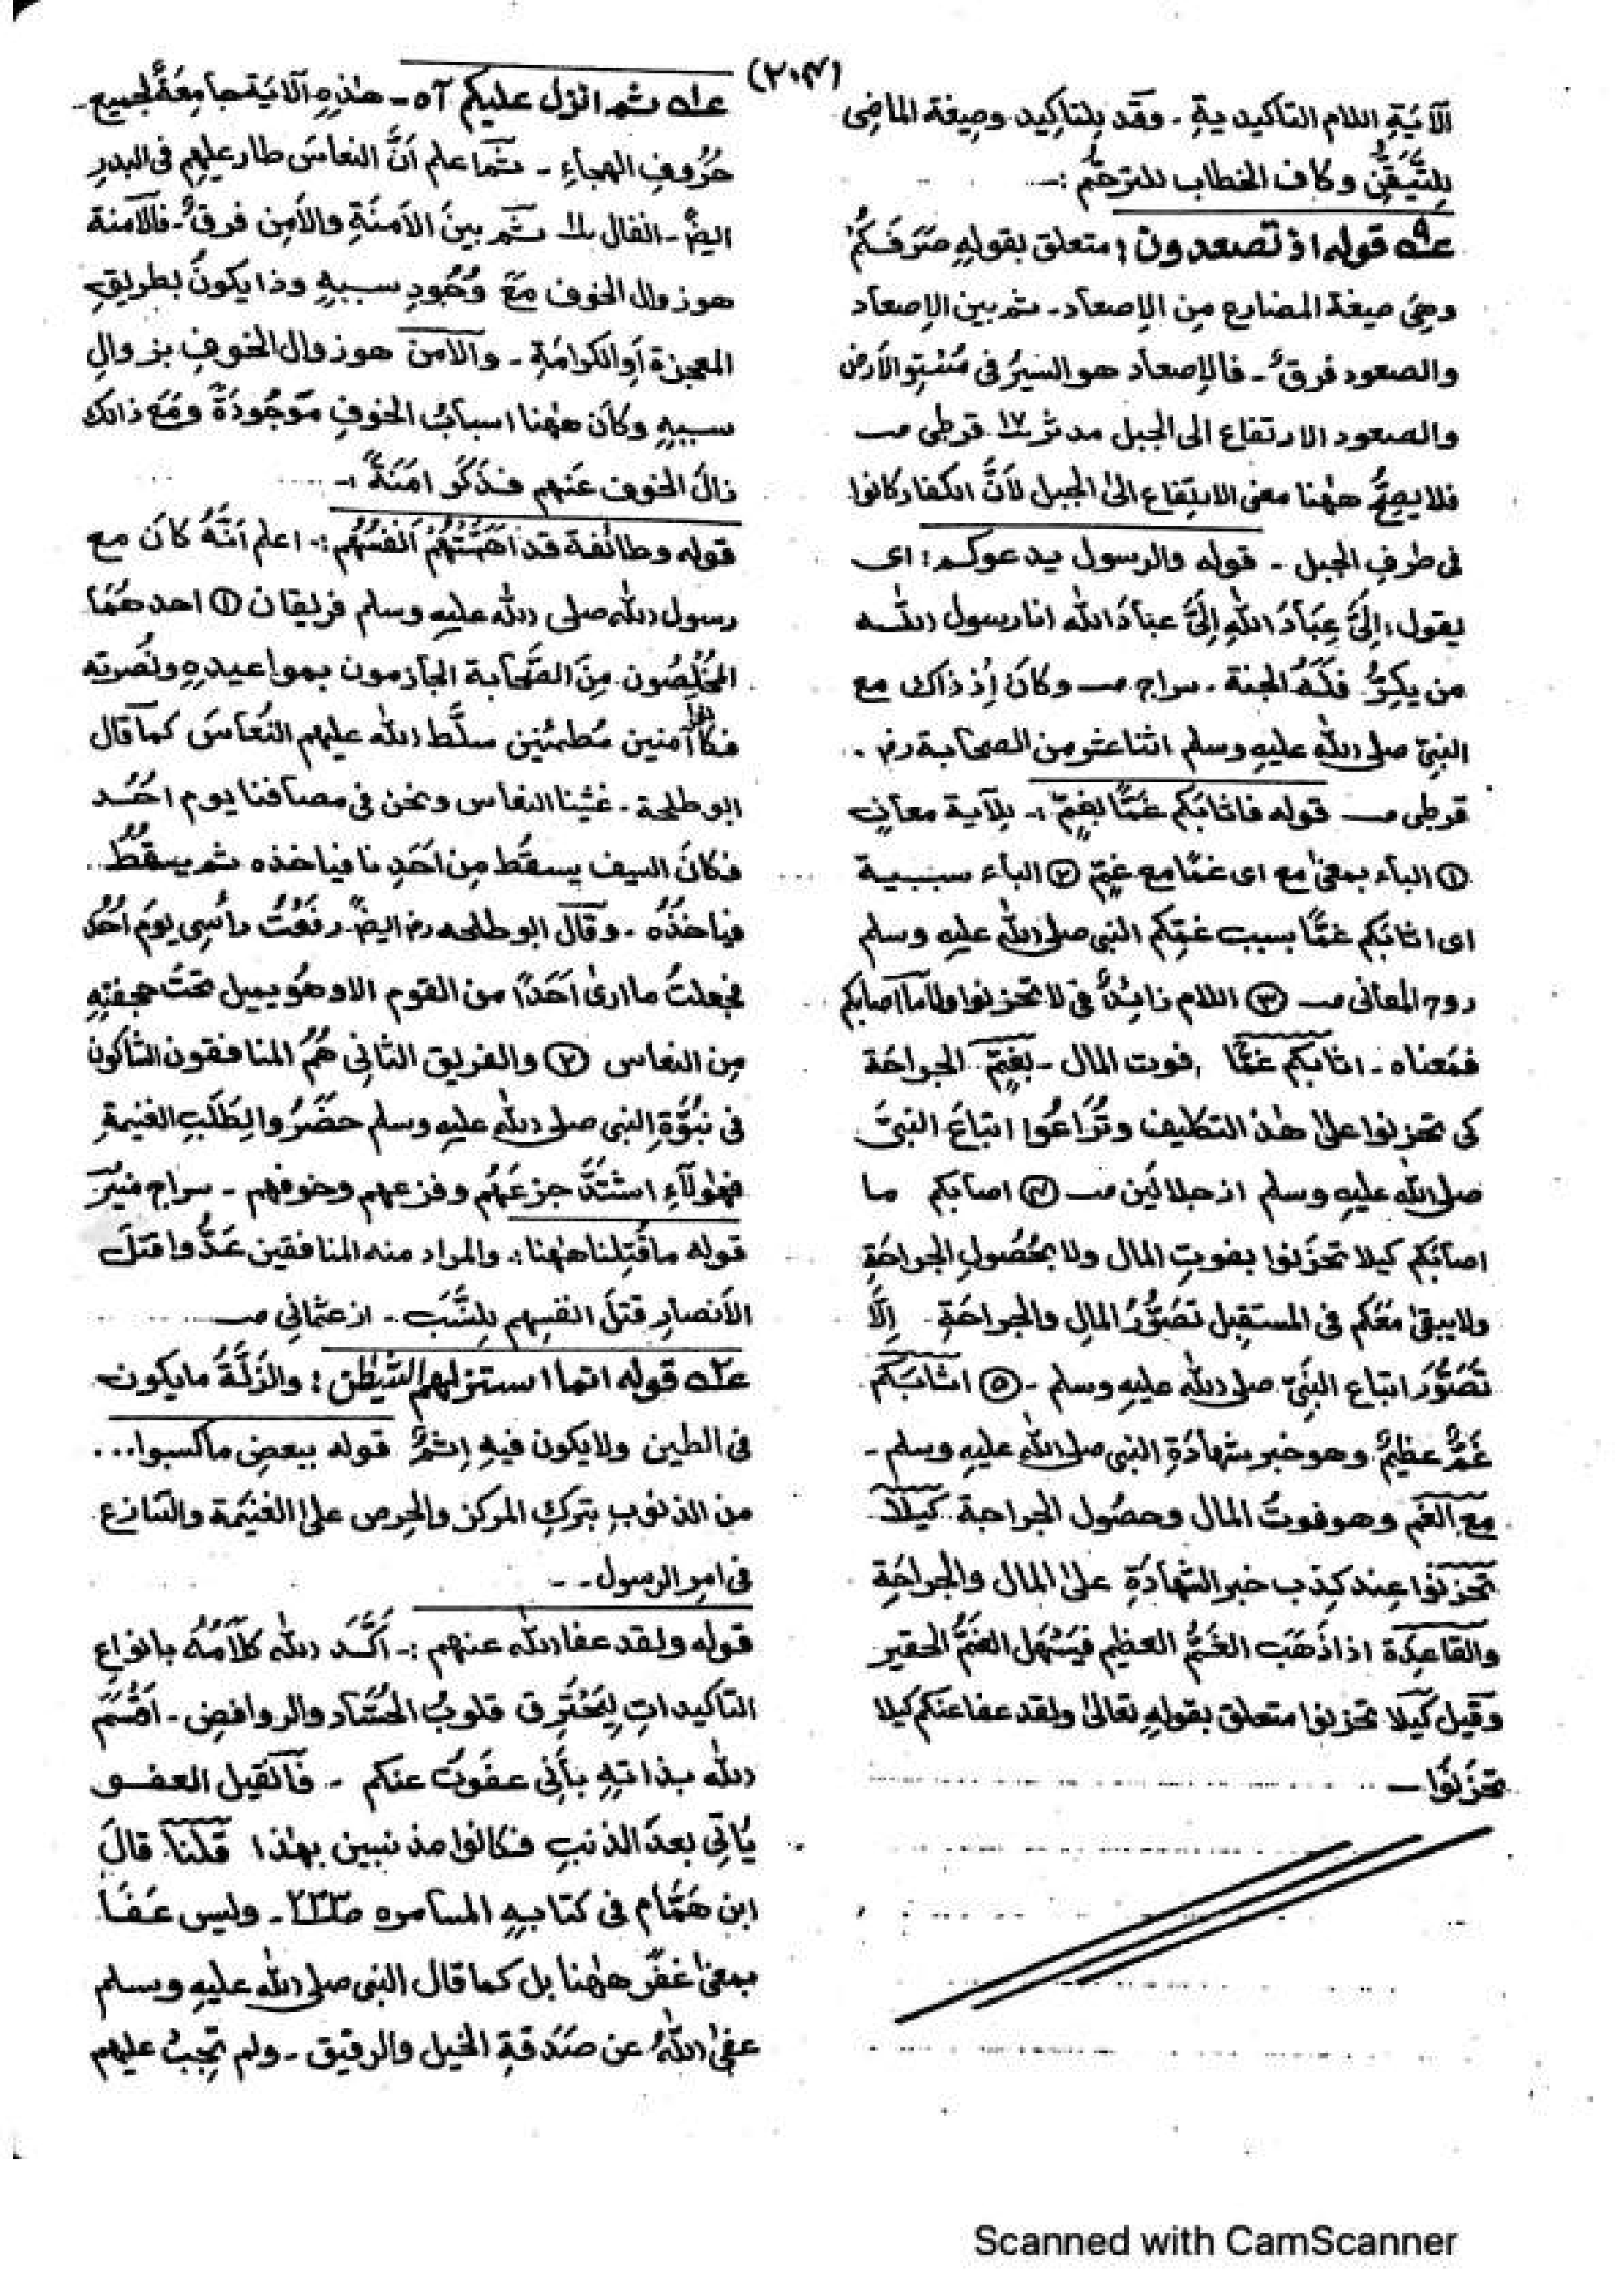 (٢٠٤)
الآيَةِ اللام التاكيدية ۔ وقَد لِلتاكِيد وصِيغة الماضِى
لِلتَّيَقُّنِ وكاف الخطاب للترحُّم :۔
ع٩ قوله اذ تصعدون : متعلق بقولِهٖ صَرَفَكُمْ
وهِىَ صيغة المضارع مِن الإصعاد ۔ ثم بين الإصعاد
والصعود فرقٌ ۔ فالإصعاد هو السيرُ فى مُسْتوِ الأرض
والصعود الارتفاع الى الجبل مدثر ١٧ قرطبى
فلا يصِحُّ ههُنا معنى الارتِفاع الىٰ الجبل لأَنَّ الكفار كانوا
فى طرفِ الجبل ۔ قوله والرسول يدعوكم : اى
يقول : إلَىَّ عِبَادَ اللهِ إلَىَّ عبادَ الله انا رسول الله
من يكِرُّ فلَهُ الجنة ۔ سراج وكانَ إذ ذاك مع
النبىّ صلى الله عليهِ وسلم اثنا عشر من الصحابة رض ۔
قرطبى قوله فاثابَكم غمًّا بغمٍّ :۔ لِلآية معانٍ
① الباء بمعنىٰ مع اى غمًّا مع غمٍّ ② الباء سببية
اى اثابَكم غمًّا بسبب غمِّكم النبى صلى الله عليهِ وسلم
روح المعانى ③ اللام زائِدٌ فى لا تحزنوا ولا ما اصابكم
فمَعناه ۔ اثابكم غمًّا فوت المال ۔ بغمٍّ الجراحَة
كى تحزنوا علىٰ هٰذ التكليف وتُرَاعُوا اتباعَ النبىّ
صلى الله عليهِ وسلم از جلالَين ④ اصابكم ما
اصابَكم كيلا تحزَنوا بفوتِ المال ولا بحُصُولِ الجراحَةِ
ولا يبقىٰ معَكم فى المستقبِل تصَوُّرُ المالِ والجراحَةِ إلَّا
تَصَوُّرَ اتباعِ النبِىّ صلى الله عليهِ وسلم ۔ ⑤ اثابَكم
غَمٌّ عظِيمٌ وهو خبر شهادَةِ النبى صلى الله عليهِ وسلم ۔
مع الغم وهو فوتُ المال وحصُول الجراحة كيلا
تحزنوا عِند كِذب خبر الشهادَةِ علىٰ المال والجراحَةِ
والقاعِدَة اذا ذَهَبَ الغَمُّ العظِيم فيَسْهل الغمُّ الحقير
وقيل كيلا تحزنوا متعلق بقولِهٖ تعالىٰ ولقد عفا عنكم كيلا
تحزَنُوا ـ
ثم انزل عليكم آه ۔ هٰذِهِ الآيَة جامِعَةٌ لجميع
حرُوفِ الهجاءِ ۔ ثم اعلم اَنَّ النعاسَ طار عليهِم فى البدرِ
ايضً ۔ انفال ثم بينَ الأمنَةِ والأمنِ فرقٌ ۔ فالأمنة
هو زوال الخوف مَعَ وُجُودِ سببهٖ وذا يكونُ بطريقِ
المعجزة أوِ الكرامَةِ ۔ والأمن هو زوال الخوف بزوالِ
سببهٖ وكانَ ههُنا اسبابُ الخوفِ مَوجُودَةً ومَعَ ذالك
زالَ الخوف عَنهم فذَكَرَ امَنَةً :۔
قوله وطائفة قد اَهَمَّتْهُمْ اَنفسُهُم :۔ اعلم اَنَّهُ كانَ مع
رسول الله صلى الله عليهِ وسلم فريقان ① احدهُمَا
المُخْلِصُون مِنَ الصَّحابة الجازمون بمواعيدِهٖ ونُصرته
فكانوا آمنين مُطمئنين سلَّط الله عليهم النُعاسَ كما قال
ابو طلحة ۔ غشينا النعاس ونحن فى مصافنا يوم اُحُد
فكانَ السيف يسقُط مِن اَحَدِنا فياخذه ثم يسقُطُ
فياخذُه ۔ وقال ابو طلحه رض ايضً رفَعْتُ راْسِى يومَ اُحُد
فجعلتُ ما ارىٰ اَحَدًا من القوم الا وهُو يميل تحتُ حجفتِهٖ
مِن النعاس ② والفريق الثانِى هُمُ المنافقون الشاكون
فى نبُوَّةِ النبى صلى الله عليهِ وسلم حضَرُوا لِطَلَبِ الغنيمةِ
فهٰولآءِ اشتَدَّ جزعَهُم وفزعهم وخوفهم ۔ سراج منير
قوله ما قُتِلنا ههُنا :۔ والمراد منه المنافقين عَدُّوا قتلَ
الأنصارِ قتلَ انفسِهم لِلنَّسَب ۔ از عثمانى
قوله انما استزلهم الشيطٰن : والزَلَّةُ ما يكون
فى الطين ولا يكون فيهِ إثمٌ قوله ببعضِ ما كسبوا...
من الذنوبِ بتركِ المركز والحِرص علىٰ الغنيمَة والتنازع
فى امرِ الرسول ۔ ۔
قوله ولقد عفا الله عنهم :۔ أكَّدَ الله كلامَهُ بانواعِ
التاكيداتِ لِيَحْتَرِق قلوبُ الحسَّاد والروافِض ۔ اقْسَمَ
الله بذاتِهٖ بأنِى عفَوتُ عنكم ۔ فالقيل العفو
يَاتِى بعدَ الذنبِ فكانوا مذنبين بهٰذا قُلنَا قالَ
ابن هَمَّام فى كتابهٖ المسامره ۔ وليس عَفَا
بمعنىٰ غفَرَ ههُنا بل كما قال النبى صلى الله عليهِ وسلم
عفىٰ اللهُ عن صَدَقةِ الخيل والرقيق ۔ ولم تجِبْ عليهم
Scanned with CamScanner